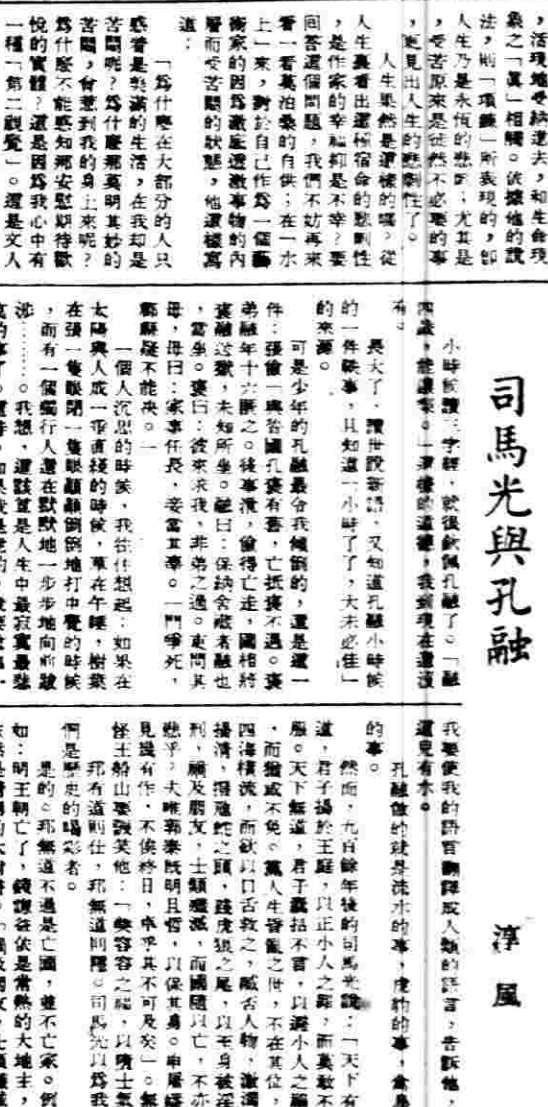 ，活現地受納進去，和生命現
象之「真」相觸。依據他的說
法，則「項鍊」所表現的，卽
人生乃是永恆的悲哀；尤其是
，受苦原來是徒然不必要的事
，更見出人生的悲劇性了。
人生果然是這樣的嗎？從
人生裏看出這種宿命的悲劇性
，是作家的幸福抑是不幸？要
回答這個問題，我們不妨再來
看一看莫泊桑的自供：在「水
上」來，對於自己作爲一個藝
術家的因爲澈底透澈事物的內
層而受苦悶的狀態，他這樣寫
道：
「爲什麼在大部分的人只
感着是美滿的生活，在我却是
苦悶呢？爲什麼那莫明其妙的
苦悶，會惹到我的身上來呢？
爲什麼不能感知那安慰期待歡
悅的實體？這是因爲我心中有
一種「第二視覺」。這是文人
司馬光與孔融
淳風
小時候讀三字經，就很欽佩孔融了。「融
四歲，能讓梨。」這樣的道德，我到現在還沒
有。
長大了，讀世說新語，又知道孔融小時候
的一件軼事，且知道「小時了了，大未必佳」
的來源。
可是少年的孔融最令我傾倒的，還是這一
件：張儉「與答國孔褒有舊，亡抵褒不遇。褒
弟融年十六匿之。後事洩，儉得亡走，國相將
褒融送獄，未知所坐。融曰：保納舍藏者融也
，當坐。褒曰：彼來求我，非弟之過。吏問其
母，母曰：家事任長，妾當其辜。一門爭死，
郡縣疑不能決。」
一個人沉思的時候，我往往想起：如果在
太陽與人成一垂直綫的時候，草在午睡，樹葉
在張一隻眼閉一隻眼顚顚倒倒地打中覺的時候
，而有一個獨行人還在默默地一步步地向前跋
涉……。我想，這該算是人生中最寂寞最悲
我要使我的語言翻譯成人類的語言，告訴他，
還見有水。
孔融做的就是流水的事，虎豹的事，禽鳥
的事。
然而，九百餘年後的司馬光說：「天下有
道，君子揚於王庭，以正小人之罪，而莫敢不
服。天下無道，君子囊括不言，以避小人之禍
，而猶或不免。黨人生昏亂之世，不在其位，
四海橫流，而欲以口舌救之，臧否人物，激濁
揚清，撩虺蛇之頭，踐虎狼之尾，以至身被淫
刑，禍及朋友，士類殲滅，而國隨以亡，不亦
悲乎？夫唯郭泰旣明且哲，以保其身。申屠蟠
見幾有作，不俟終日，卓乎其不可及矣」。無
怪王船山要譏笑他：「奬容容之福，以墮士氣
邦有道則仕，邦無道則隱。司馬光以爲我
們是歷史的喝彩者。
是的。邦無道不過是亡國，並不亡家。例
如：明王朝亡了，錢謙益依是常熟的大地主，